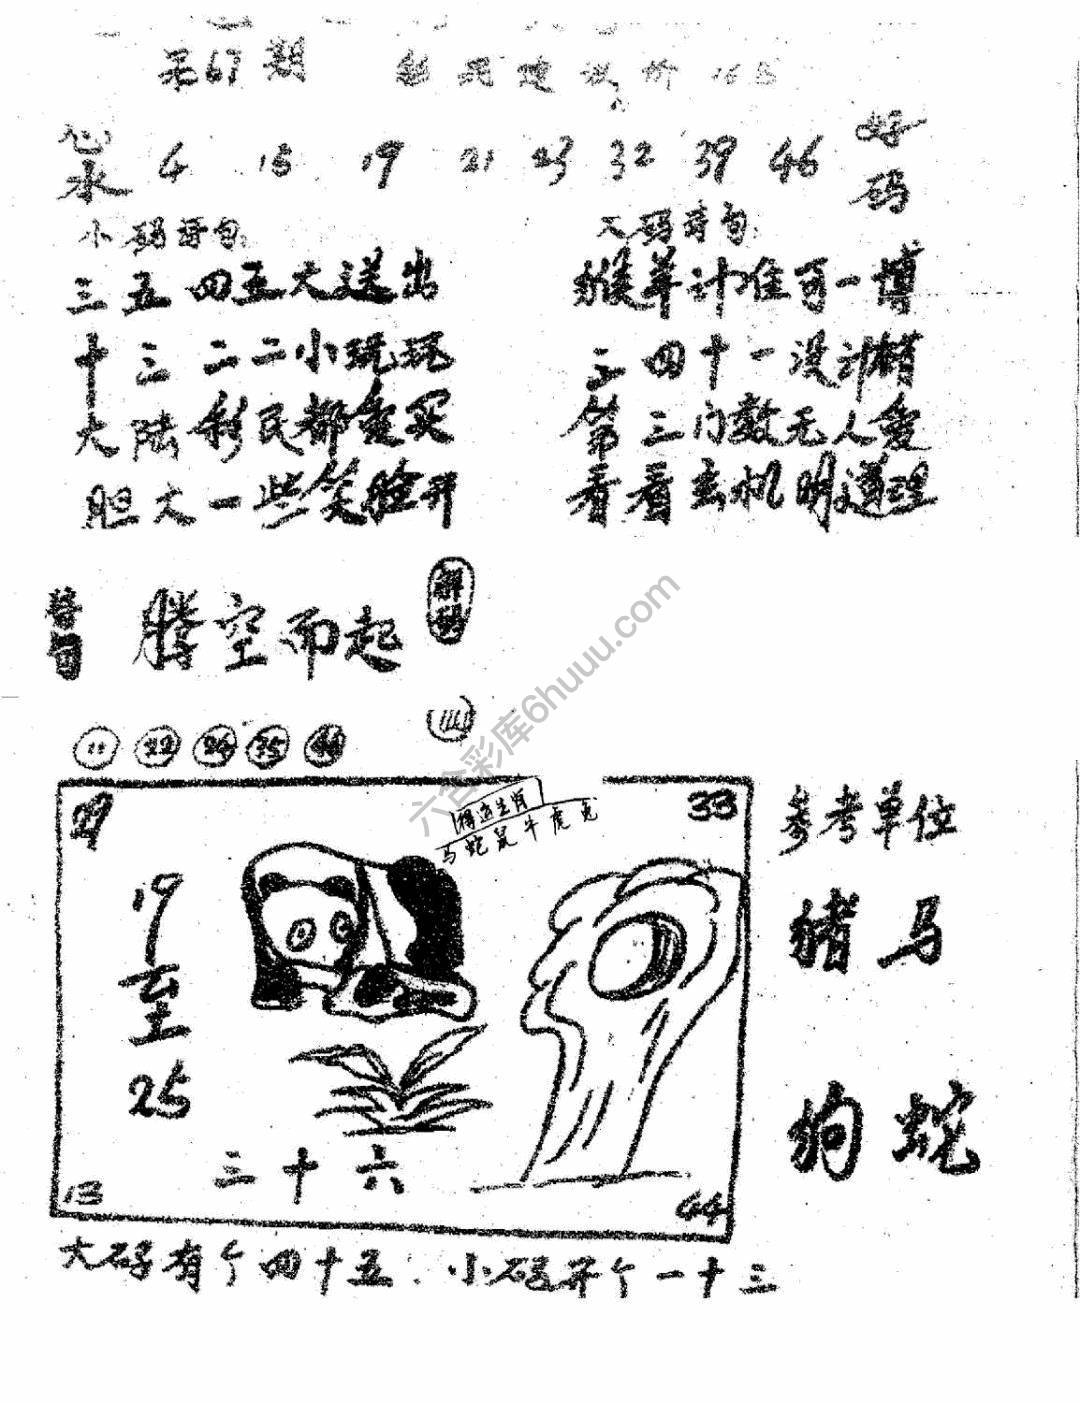 第67期
心水 4 15 19 21 23 32 39 46 好码
小码诗句: 大码诗句:
三五四五大送出 猴羊计准可一博
十三二二小玩玩 三四十一没计精
大陆彩民都爱买 第三门数无人爱
胆大一些笑脸开 看看玄机明道理
解码
腾空而起
11 22 24 35 44
得道生肖
马蛇鼠牛虎兔
29 33
参考单位
19至25
猪马
狗蛇
三十六
13 44
大码有个四十五.小码开个一十三
六合彩库6huuu.com